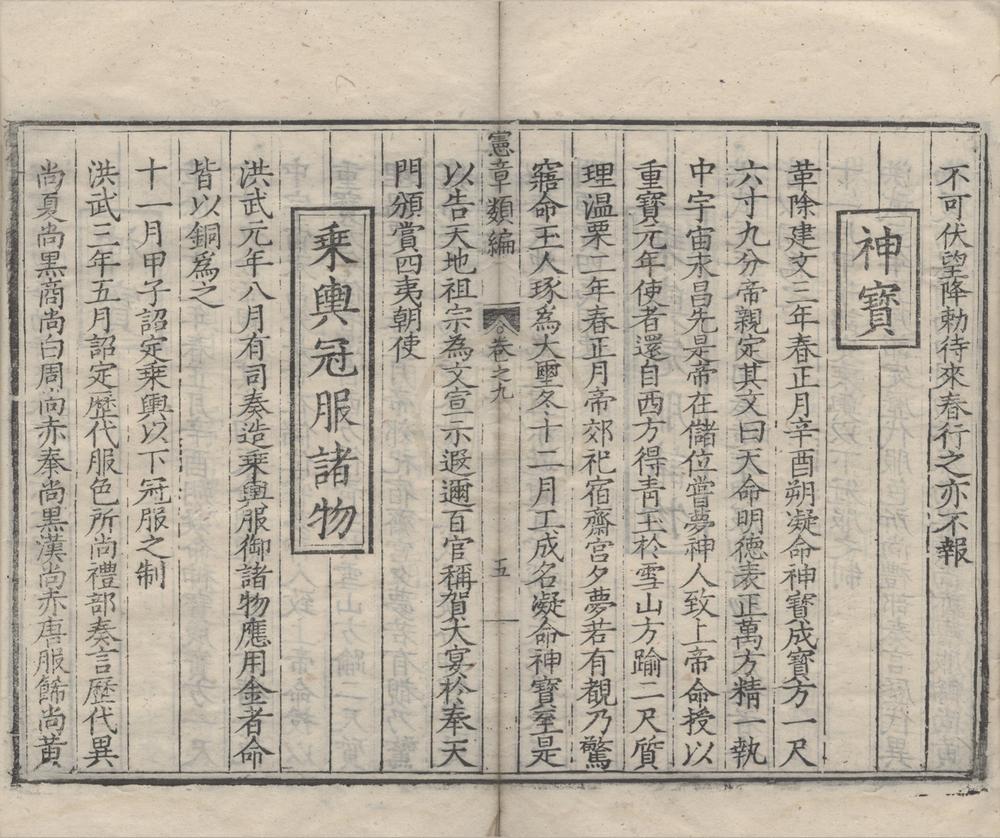 不可伏望降勅待來春行之亦不報
神寶
革除建文三年春正月辛酉朔凝命神寶成寶方一尺
六寸九分帝親定其文曰天命明德表正萬方精一執
中宇宙永昌先是帝在儲位嘗夢神人致上帝命授以
重寶元年使者還自西方得青玉於雪山方踰二尺質
理温栗二年春正月帝郊祀宿齋宮夕夢若有覩乃驚
寤命玉人琢為大璽冬十二月工成名凝命神寶至是
以告天地祖宗為文宣示遐邇百官稱賀大宴於奉天
門頒賞四夷朝使
憲章類編
卷之九
五
乘輿冠服諸物
洪武元年八月有司奏造乘輿服御諸物應用金者命
皆以銅為之
十一月甲子詔定乘輿以下冠服之制
洪武三年五月詔定歷代服色所尚禮部奏言歷代異
尚夏尚黒商尚白周尚赤秦尚黒漢尚赤唐服餙尚黃